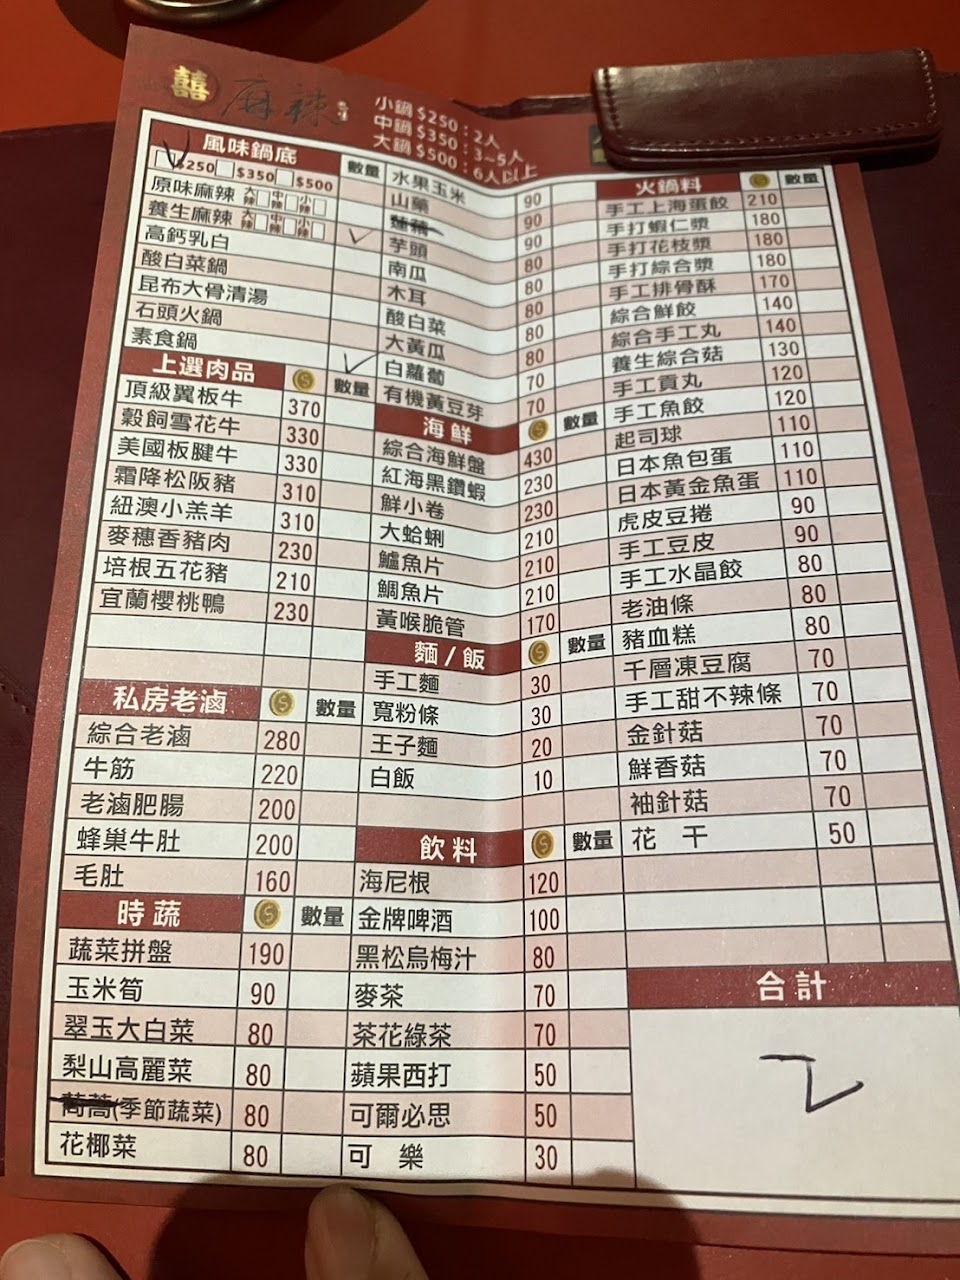 囍 麻辣
小鍋$250:2人
中鍋$350:3~5人
大鍋$500:6人以上
風味鍋底 數量
$250 $350 $500
原味麻辣 大辣 中辣 小辣
養生麻辣 大辣 中辣 小辣
高鈣乳白
酸白菜鍋
昆布大骨清湯
石頭火鍋
素食鍋
上選肉品 數量
頂級翼板牛 370
穀飼雪花牛 330
美國板腱牛 330
霜降松阪豬 310
紐澳小羔羊 310
麥穗香豬肉 230
培根五花豬 210
宜蘭櫻桃鴨 230
私房老滷 數量
綜合老滷 280
牛筋 220
老滷肥腸 200
蜂巢牛肚 200
毛肚 160
時蔬 數量
蔬菜拼盤 190
玉米筍 90
翠玉大白菜 80
梨山高麗菜 80
茼蒿(季節蔬菜) 80
花椰菜 80
水果玉米 90
山藥 90
蓮藕 90
芋頭 80
南瓜 80
木耳 80
酸白菜 80
大黃瓜 80
白蘿蔔 70
有機黃豆芽 70
海鮮 數量
綜合海鮮盤 430
紅海黑鑽蝦 230
鮮小卷 230
大蛤蜊 210
鱸魚片 210
鯛魚片 210
黃喉脆管 170
麵/飯 數量
手工麵 30
寬粉條 30
王子麵 20
白飯 10
飲料 數量
海尼根 120
金牌啤酒 100
黑松烏梅汁 80
麥茶 70
茶花綠茶 70
蘋果西打 50
可爾必思 50
可 樂 30
火鍋料 數量
手工上海蛋餃 210
手打蝦仁漿 180
手打花枝漿 180
手打綜合漿 180
手工排骨酥 170
綜合鮮餃 140
綜合手工丸 140
養生綜合菇 130
手工貢丸 120
手工魚餃 120
起司球 110
日本魚包蛋 110
日本黃金魚蛋 110
虎皮豆捲 90
手工豆皮 90
手工水晶餃 80
老油條 80
豬血糕 80
千層凍豆腐 70
手工甜不辣條 70
金針菇 70
鮮香菇 70
袖針菇 70
花 干 50
合計